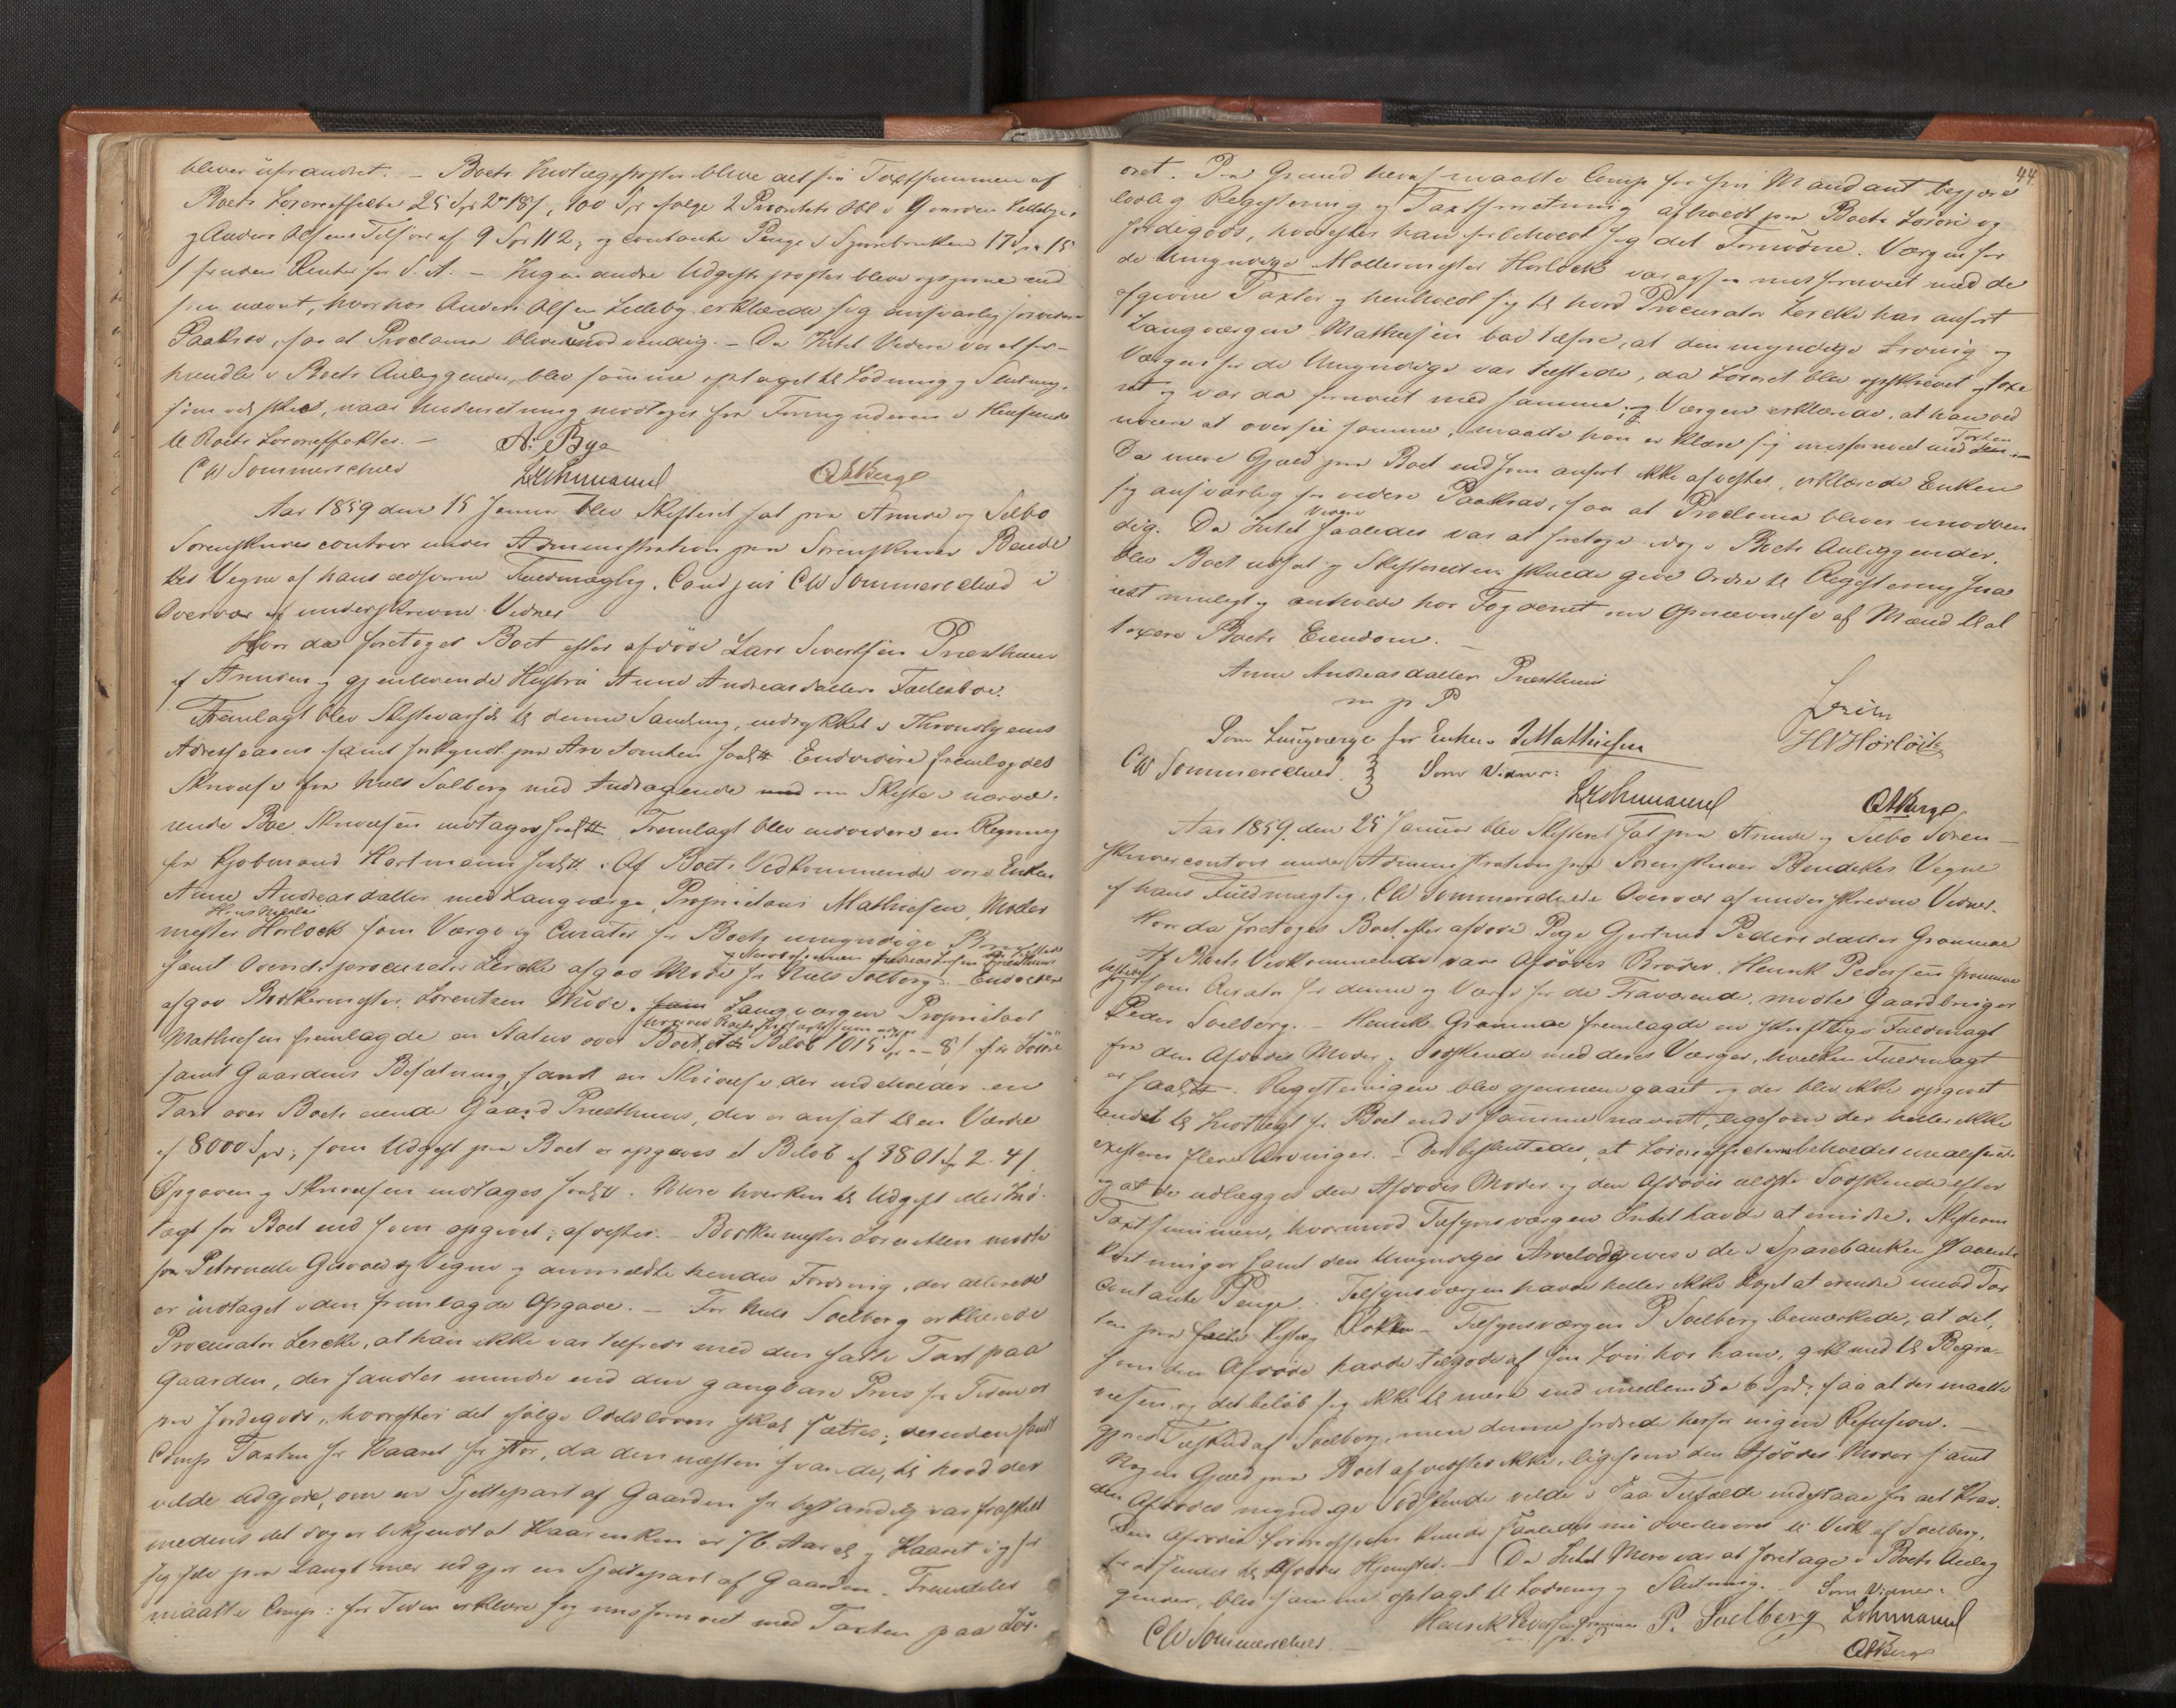 bliver uforandret. – Boets Indtægtsposter bleve alt saa Taxtsummen af
Boets Løsøreeffekter 25 Spd 2 # 18 s, 100 Spd ifølge 2 Prioritets Obl i Gaarden Lilleby
og Anders Olsens Tilsvar af 9 Spd 112, og contante Penge i Sparebanken 17 Spd 15
s foruden Renter for d. A. – Ingen andre Udgiftsposter bleve opgivne end
som nævnt, hvorhos Anders Olsen Lilleby erklærede sig ansvarlig for videre
Paakrav, saa at Proclama bliver unødvendig. – Da Intet Videre var at for-
handle i Boets Anliggender, blev samme optaget til Lodning og Slutning,
som vil skee, naar Underretning modtages fra Formynderen i Henseende
til Boets Løsøreeffekter. – A. Bye
CW Sommerschield Lohmannd OABerge
Aar 1859 den 15 Januar blev Skifteret sat paa Strinde og Selbo
Sorenskrivercontoir under Administration paa Sorenskriver Bende
kes Vegne af hans edsvorne Fuldmægtig, Cand jur CW Sommerschield i
Overvær af underskrevne Vidner
Hvor da foretoges Boet efter afdøde Lars Sivertsen Præsthuus
af Strinden og gjenlevende Hustru Anne Andreasdatters Fællesboe.
Fremlagt blev Skiftevarsel til denne Samling, indrykket i Throndhjems
Adresseavis samt forkyndt paa Arvetomten saal. # Endvidere fremlagdes
Skrivelse fra Niels Solberg med Andragende om Skifte i nærvæ-
rende Boe. Skrivelsen indtages saal. # Fremlagt blev endvidere en Regning
fra Kjøbmand Hartmann saal. # . Af Boets Vedkommende vare Enken
Anne Andreasdatter med Laugværge, Proprietair Mathiesen, Møller
Hans Nicolai
mester Hørlöck som Værge og Curator for Boets umyndige
samt Overretsprocurator Lercke afgav Møde for Niels Solberg. – Endvidere
afgav Bødkermester Lorentzen Møde. Laugværgen Proprietair
Mathiesen fremlagde en Status over Boet, et Beløb 1015 Spd – 8 s for Løsøre
samt Gaardens Besætning, samt en Skrivelse der indeholder en
Taxt over Boets eiende Gaard Præsthuus, der er ansat til en Værdie
af 8000 Spd; som Udgift paa Boet er opgives et Beløb af 3801 Spd 2. 4 s.
Opgaven og Skrivelsen indtages saal. #. Mere hverken til Udgift eller Ind-
tægt for Boet end som opgivet, afvistes. – Bødkermester Lorentzen mødte
for Petronelle Gisvolds Vegne og anmeldte hendes Fordring, der allerede
er indtaget i den fremlagde Opgave. – For Niels Soelberg erklærede
Procurator Lercke, at han ikke var tilfreds med den satte Taxt paa
Gaarden, der fandtes mindre end den gangbare Priis for Tiden er
paa Jordegods, hvorefter det ifølge Odelsloven skal sættes; desuden fandt
Comp Taxten for Kaaret for stor, da den næsten svarede til hvad der
vilde udgjøre, om en Sjettepart af Gaarden for bestandig var fraskilt
medens det dog er bekjendt at Kaarenken er 76 Aar gl. og Kaaret i og for
sig selv paa langt nær udgjør en Sjettepart af Gaarden. Fremdeles
maatte Comp: for Tiden erklære sig misfornøiet med Taxten paa Løs-
44.
øret. Paa Grund heraf maatte Comp for sin Mandant begjære
lovlig Registrering og Taxtforretning afholdt paa Boets Løsøre og
Jordegods, hvorefter han forbeholdt sig det Fornødne. Værgen for
de Umyndige Møllermester Hørlöck var ogsaa misfornøiet med de
afgivne Taxter og henholdt sig til hvad Procurator Lercke har anført
Laugværgen Mathiesen bad tilføre, at den myndige Arving og
Værgen for de Umyndige var tilstede, da Løsøret blev opskrevet og taxe
ret og var da fornøiet med samme, og Værgen erklærede, at han ved
nøiere at oversee samme, maatte han erklære sig misfornøiet med Taxten
Da mere Gjæld paa Boet end som anført ikke afvistes, erklærede Enken
sig ansvarlig for videre Paakrav, saa at Proclama bliver unødven
dig. Da Intet videre saaledes var at foretage idag i Boets Anliggender,
blev Boet udsat og Skifteretten skulde give Ordre til Registrering snar
est muligt og anholde hos Fogderiet om Opnævnelse af Mænd til at
taxere Boets Eiendom. –
Anne Andreasdatter Præsthuus
m. p. P.
Som Laugværge for Enken JMathiesen HNHørlöck
CW Sommerschield. Som Vidner:
Lohmannd OABerge
Aar 1859 den 25 Januar blev Skifteret sat paa Strinde og Selbo Soren-
skrivercontoir under Administration paa Sorenskriver Bendekes Vegne
af hans Fuldmægtig, CW Sommerschield i Overvær af underskrevne Vidner.
Hvor da foretoges Boet efter afdøde Pige Gertrud Pedersdatter Gramnæs
Af Boets Vedkommende vare Afdødes Broder, Henrik Pedersen Gramnæs
som Curator for denne og Værge for de Fraværende, mødte Gaardbruger
Peder Soelberg. – Henrik Gramnæs fremlagde en skriftlig Fuldmagt
fra den Afdødes Moder og Sødskende med deres Værger, hvilken Fuldmagt
er saal. #. Registeringen blev gjennemgaaet og der blev ikke opgivet
andet til Indtægt for Boet end i samme nævnt, ligesom der heller ikke
existerer flere Arvinger. – Der besluttedes, at Løsøreeffecterne beholdes urealiserede
og at de udlægges den Afdødes Moder og den Afdødes ældste Sødskende efter
Taxtsummen, hvorimod Tilsynsværgen Intet havde at erindre. Skifteom
kostninger samt den Umyndiges Arvelod gives i de i Sparebanken staaende
contante Penge. Tilsynsværgen havde heller ikke Noget at erindre mod Tax
ten paa – Tilsynsværgen P Soelberg bemærkede, at det,
som den Afdøde havde tilgode af sin Løn hos ham, gik med til Begra-
velsen, og det beløb sig ikke til mere end imellem 5 a 6 Spd, saa at der maatte
gjøres Tilskud af Soelberg, men denne fordrede herfor ingen Refusion. –
Nogen Gjæld paa Boet afvistes ikke, ligesom den Afdødes Moder samt
den Afdødes myndige Sødskende vilde i saa Tilfælde indestaae for alt Krav.
Den Afdødes Løsøreeffecter kunde saaledes nu overleveres til Vedk af Soelberg,
for at sendes til Afdødes Hjemsted. – Da Intet Mere var at foretage i Boets Anlig
gender, blev samme optaget til Lodning og Slutning. – Som Vidner:
CW Sommerschield. – Henrik Pedersen Gramnæs P. Soelberg Lohmannd
OABerge